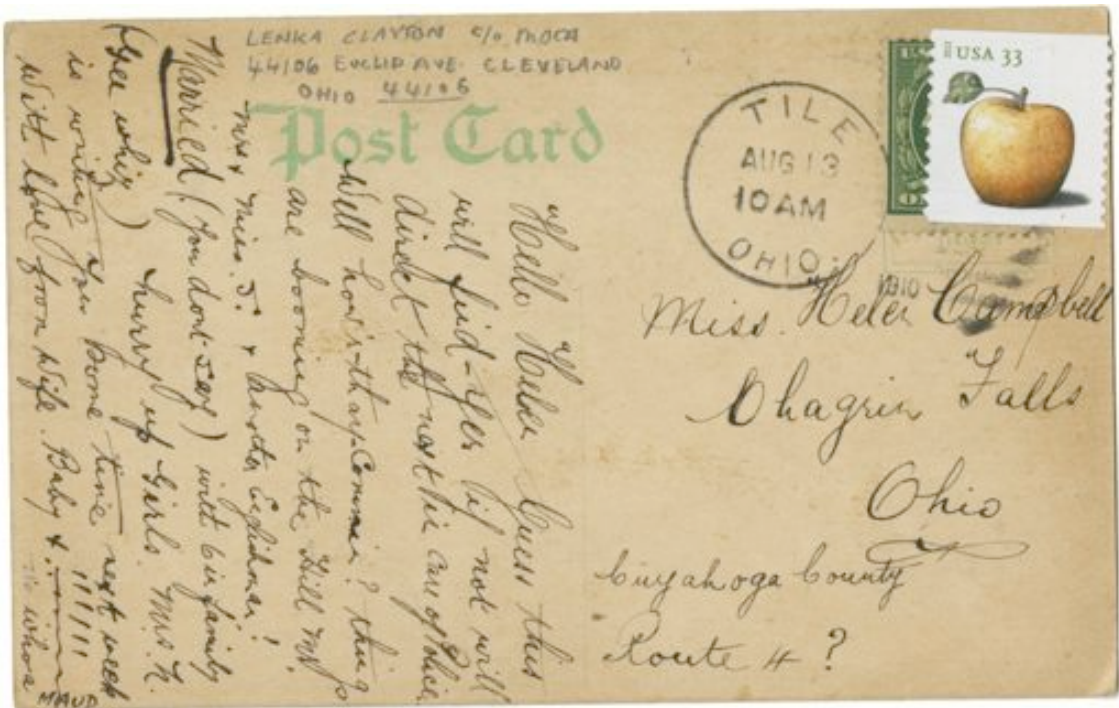 LENKA CLAYTON c/o MOCA
44106 EUCLID AVE. CLEVELAND
OHIO 44106
Post Card
USA 33
TILE
AUG 13
10 AM
OHIO.
1910
Miss. Helen Campbell
Chagrin Falls
Ohio
Cuyahoga County
Route 4 ?
"Hello Helen" Guess this
will find-yer if not will
direct the next in care of Police.
Well how's thays Commin? things
are booming on the Hill Mr.
Mrs & Miss. J. & another Epidemic!
Married (you dont say) with 6 in family
(Gee whiz) hurry up Girls. Mrs. H.
is writing you some time next week
With love from Wife. Baby & !!!!!!
whoa
MAUD